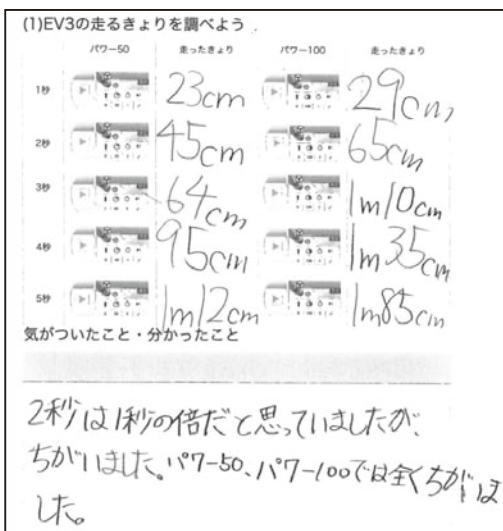 (1)EV3の走るきょりを調べよう
パワー50 走ったきょり パワー100 走ったきょり
1秒 23cm 29cm
2秒 45cm 65cm
3秒 64cm 1m10cm
4秒 95cm 1m35cm
5秒 1m12cm 1m85cm
気がついたこと・分かったこと
2秒は1秒の倍だと思っていましたが、
ちがいました。パワー50、パワー100では全くちがいま
した。